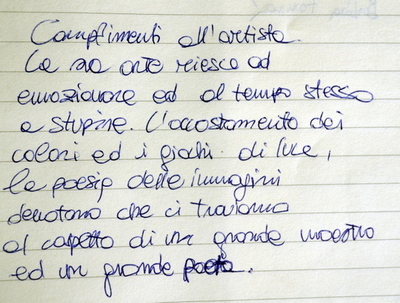 Complimenti all'artista.
La sua arte riesce ad
emozionare ed al tempo stesso
a stupire. L'accostamento dei
colori ed i giochi di luce,
la poesia delle immagini
denotano che ci troviamo
al cospetto di un grande maestro
ed un grande poeta.